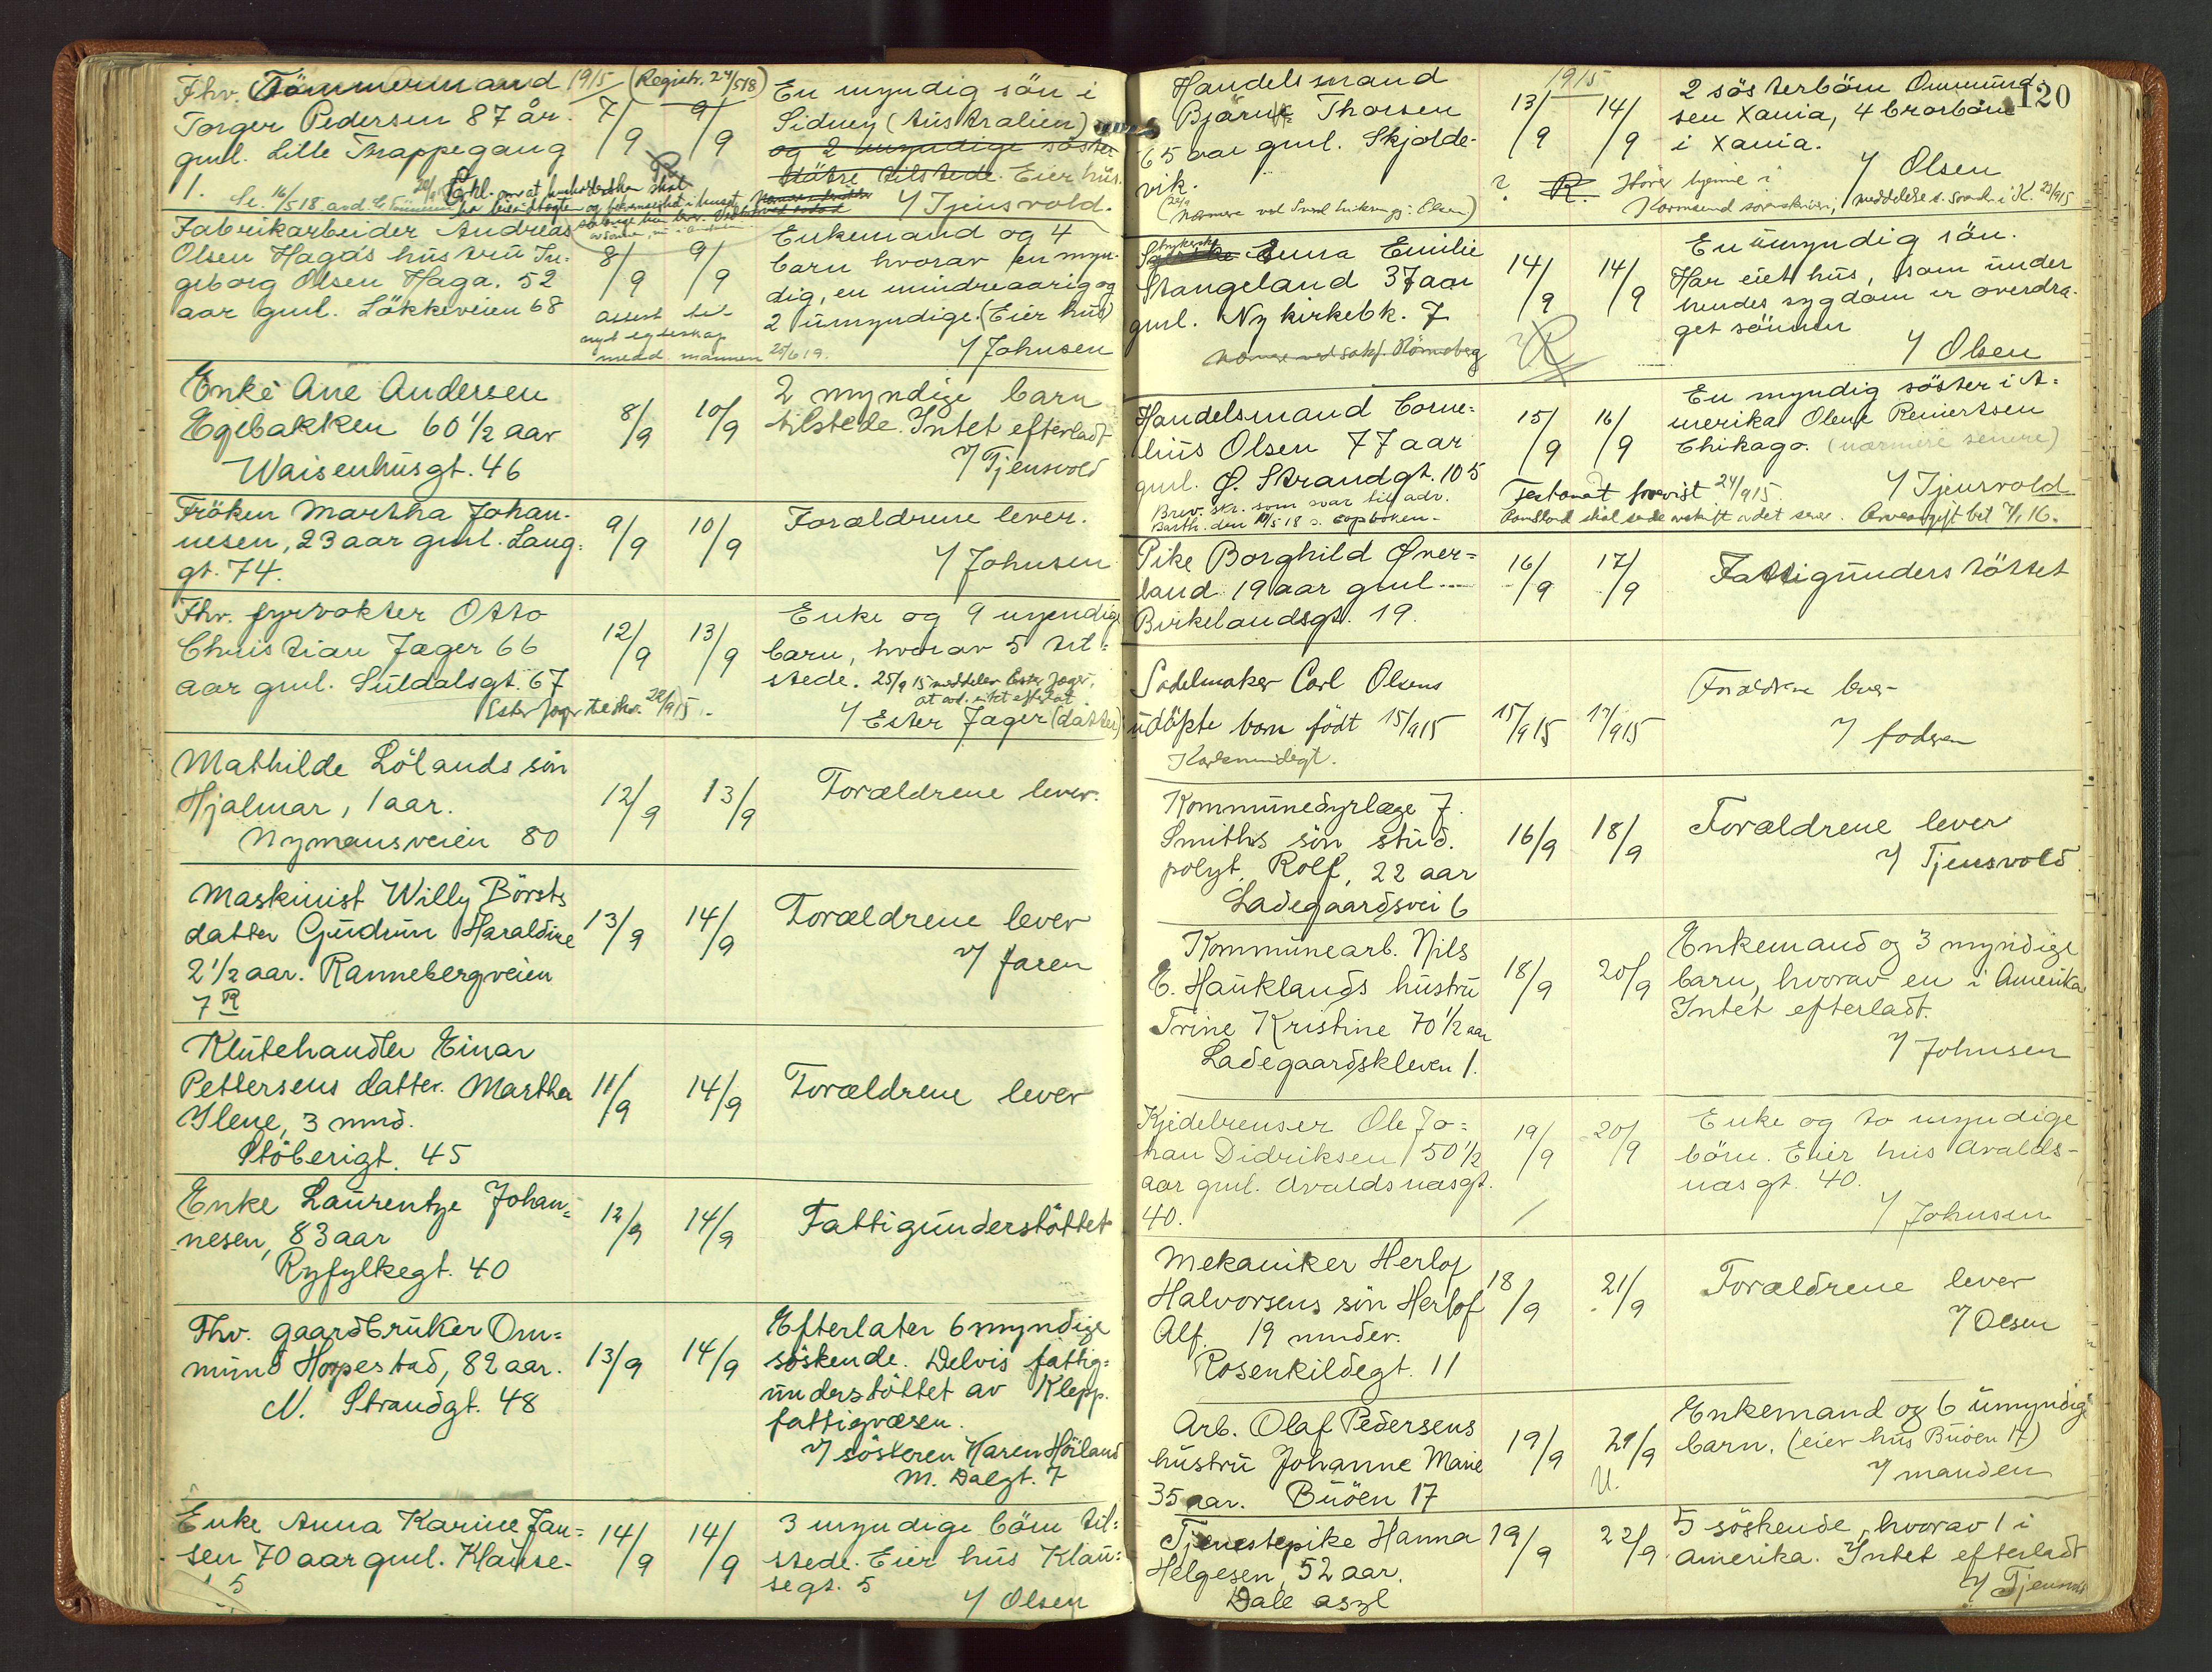 Fhv. Tömmermand 1915 (Registr. 24/518)
Torger Pedersen 87 år
gml. Lille Trappegang
1.
7/9 9/9
En myndig sön i
Sidney (Australien)
og 2 umyndige söster
döttre tilstede. Eier hus.
Se. 16/518
V/ Tjensvold.
Fabrikarbeider Andreas
Olsen Hagas hustru In-
geborg Olsen Haga. 52
aar gml. Lökkeveien 68
8/9 9/9
attest til
nyt egteskap
medd. mannen 25/619.
Enkemand og 4
barn hvorav en myn-
dig, en mindreaarig og
2 umyndige. (Eier hus)
V/ Johnsen
Enke Ane Andersen
Egebakken 60 1/2 aar
Waisenhusgt. 46
8/9 10/9
2 myndige barn
tilstede. Intet efterladt
V/ Tjensvold
Fröken Martha Johan-
nesen, 23 aar gml. Lang-
gt. 74.
9/9 10/9
Forældrene lever.
V/ Johnsen
Fhv. fyrvokter Otto
Christian Jæger 66
aar gml. Suldalsgt. 67
12/9 13/9
Enke og 9 myndige
barn, hvorav 5 til-
stede. 25/9 15 meddeler Ester Jæger,
at avd. intet efterlot
V/ Ester Jæger (datter)
Mathilde Lölands sön
Hjalmar, 1 aar.
Nymansveien 80
12/9 13/9
Forældrene lever.
Maskinist Willy Börsts
datter Gudrun Haraldine
2 1/2 aar. Rannebergveien
7 R
13/9 14/9
Forældrene lever
V/ faren
Klutehandler Einar
Pettersens datter. Martha
Ilene, 3 mnd.
Stöberigt. 45
11/9 14/9
Forældrene lever
Enke Laurentze Johan-
nesen, 83 aar
Ryfylkegt. 40
12/9 14/9
Fattigunderstöttet
Fhv. gaardbruker Om-
mund Horpestad, 82 aar.
N. Strandgt. 48
13/9 14/9
Efterlater 6 myndige
söskende. Delvis fattig-
understöttet av Klepp.
fattigvæsen.
V/ söskeren Karen Höiland
M. Dalgt. 7
Enke Anna Karine Jan-
sen 70 aar gml. Klause-
5
14/9 14/9
3 myndige börn til-
stede. Eier hus Klau-
segt. 5
V/ Olsen
120
Handelsmand
Bjarne Thorsen
65 aar gml. Skjolde-
vik.
1915
13/9 14/9
2 sösterbörn Ommund-
sen Xania, 4 brorbörn
i Xania.
V/ Olsen
? R. Hörer hjemme i
Karmsund sorenskriveri,
Stangeland 37 aar
gml. Ny kirkebk. 7
14/9 14/9
R
En umyndig sön.
Har eiet hus, som under
hendes sygdom er overdra-
get sönnen
V/ Olsen
Handelsmand Corne-
lius Olsen 77 aar
gml. Ø. Strandgt. 105
Brev. skr. som svar til adv.
15/9 16/9
En myndig söster i A-
merika Olene Reinertsen
Chikago. (nærmere senere)
V/ Tjensvold
Testamat forevist 24/915.
Arveavgift bet 7/1 16.
Pike Borghild Øver-
land 19 aar gml
Birkelandsgt. 19.
16/9 17/9
Fattigunderstöttet
Sadelmaker Carl Olsens
udöpte barn födt 15/915
15/915 17/915
Forældrene lever
V/ faderen
Kommunedyrlæge J.
Smiths sön stud.
polyt. Rolf, 22 aar
Ladegaardsvei 6
16/9 18/9
Forældrene lever
V/ Tjensvold
Kommunearb. Nils
E. Hauklands hustru
Trine Kristine 70 1/2 aar
Ladegaardskleven 1.
18/9 20/9
Enkemand og 3 myndige
barn, hvorav en i Amerika
Intet efterladt.
V/ Johnsen
Kjedelrenser Ole Jo-
han Didriksen 50 1/2
aar gml. Avaldsnæsgt.
40.
19/9 20/9
Enke og to myndige
börn. Eier hus Avalds-
næsgt. 40.
V/ Johnsen
Mekaniker Herlof
Halvorsens sön Herlof
Alf. 19 mnder.
Rosenkildegt. 11
18/9 21/9
Forældrene lever
V/ Olsen
Arb. Olaf Pedersens
hustru Johanne Marie
35 aar. Buöen 17
19/9 21/9
U.
Enkemand og 6 umyndige
barn. (eier hus Buöen 17)
V/ manden
Tjenestepike Hanna
Helgesen, 52 aar.
Dale asyl
19/9 22/9
5 söskende, hvorav 1 i
Amerika. Intet efterladt